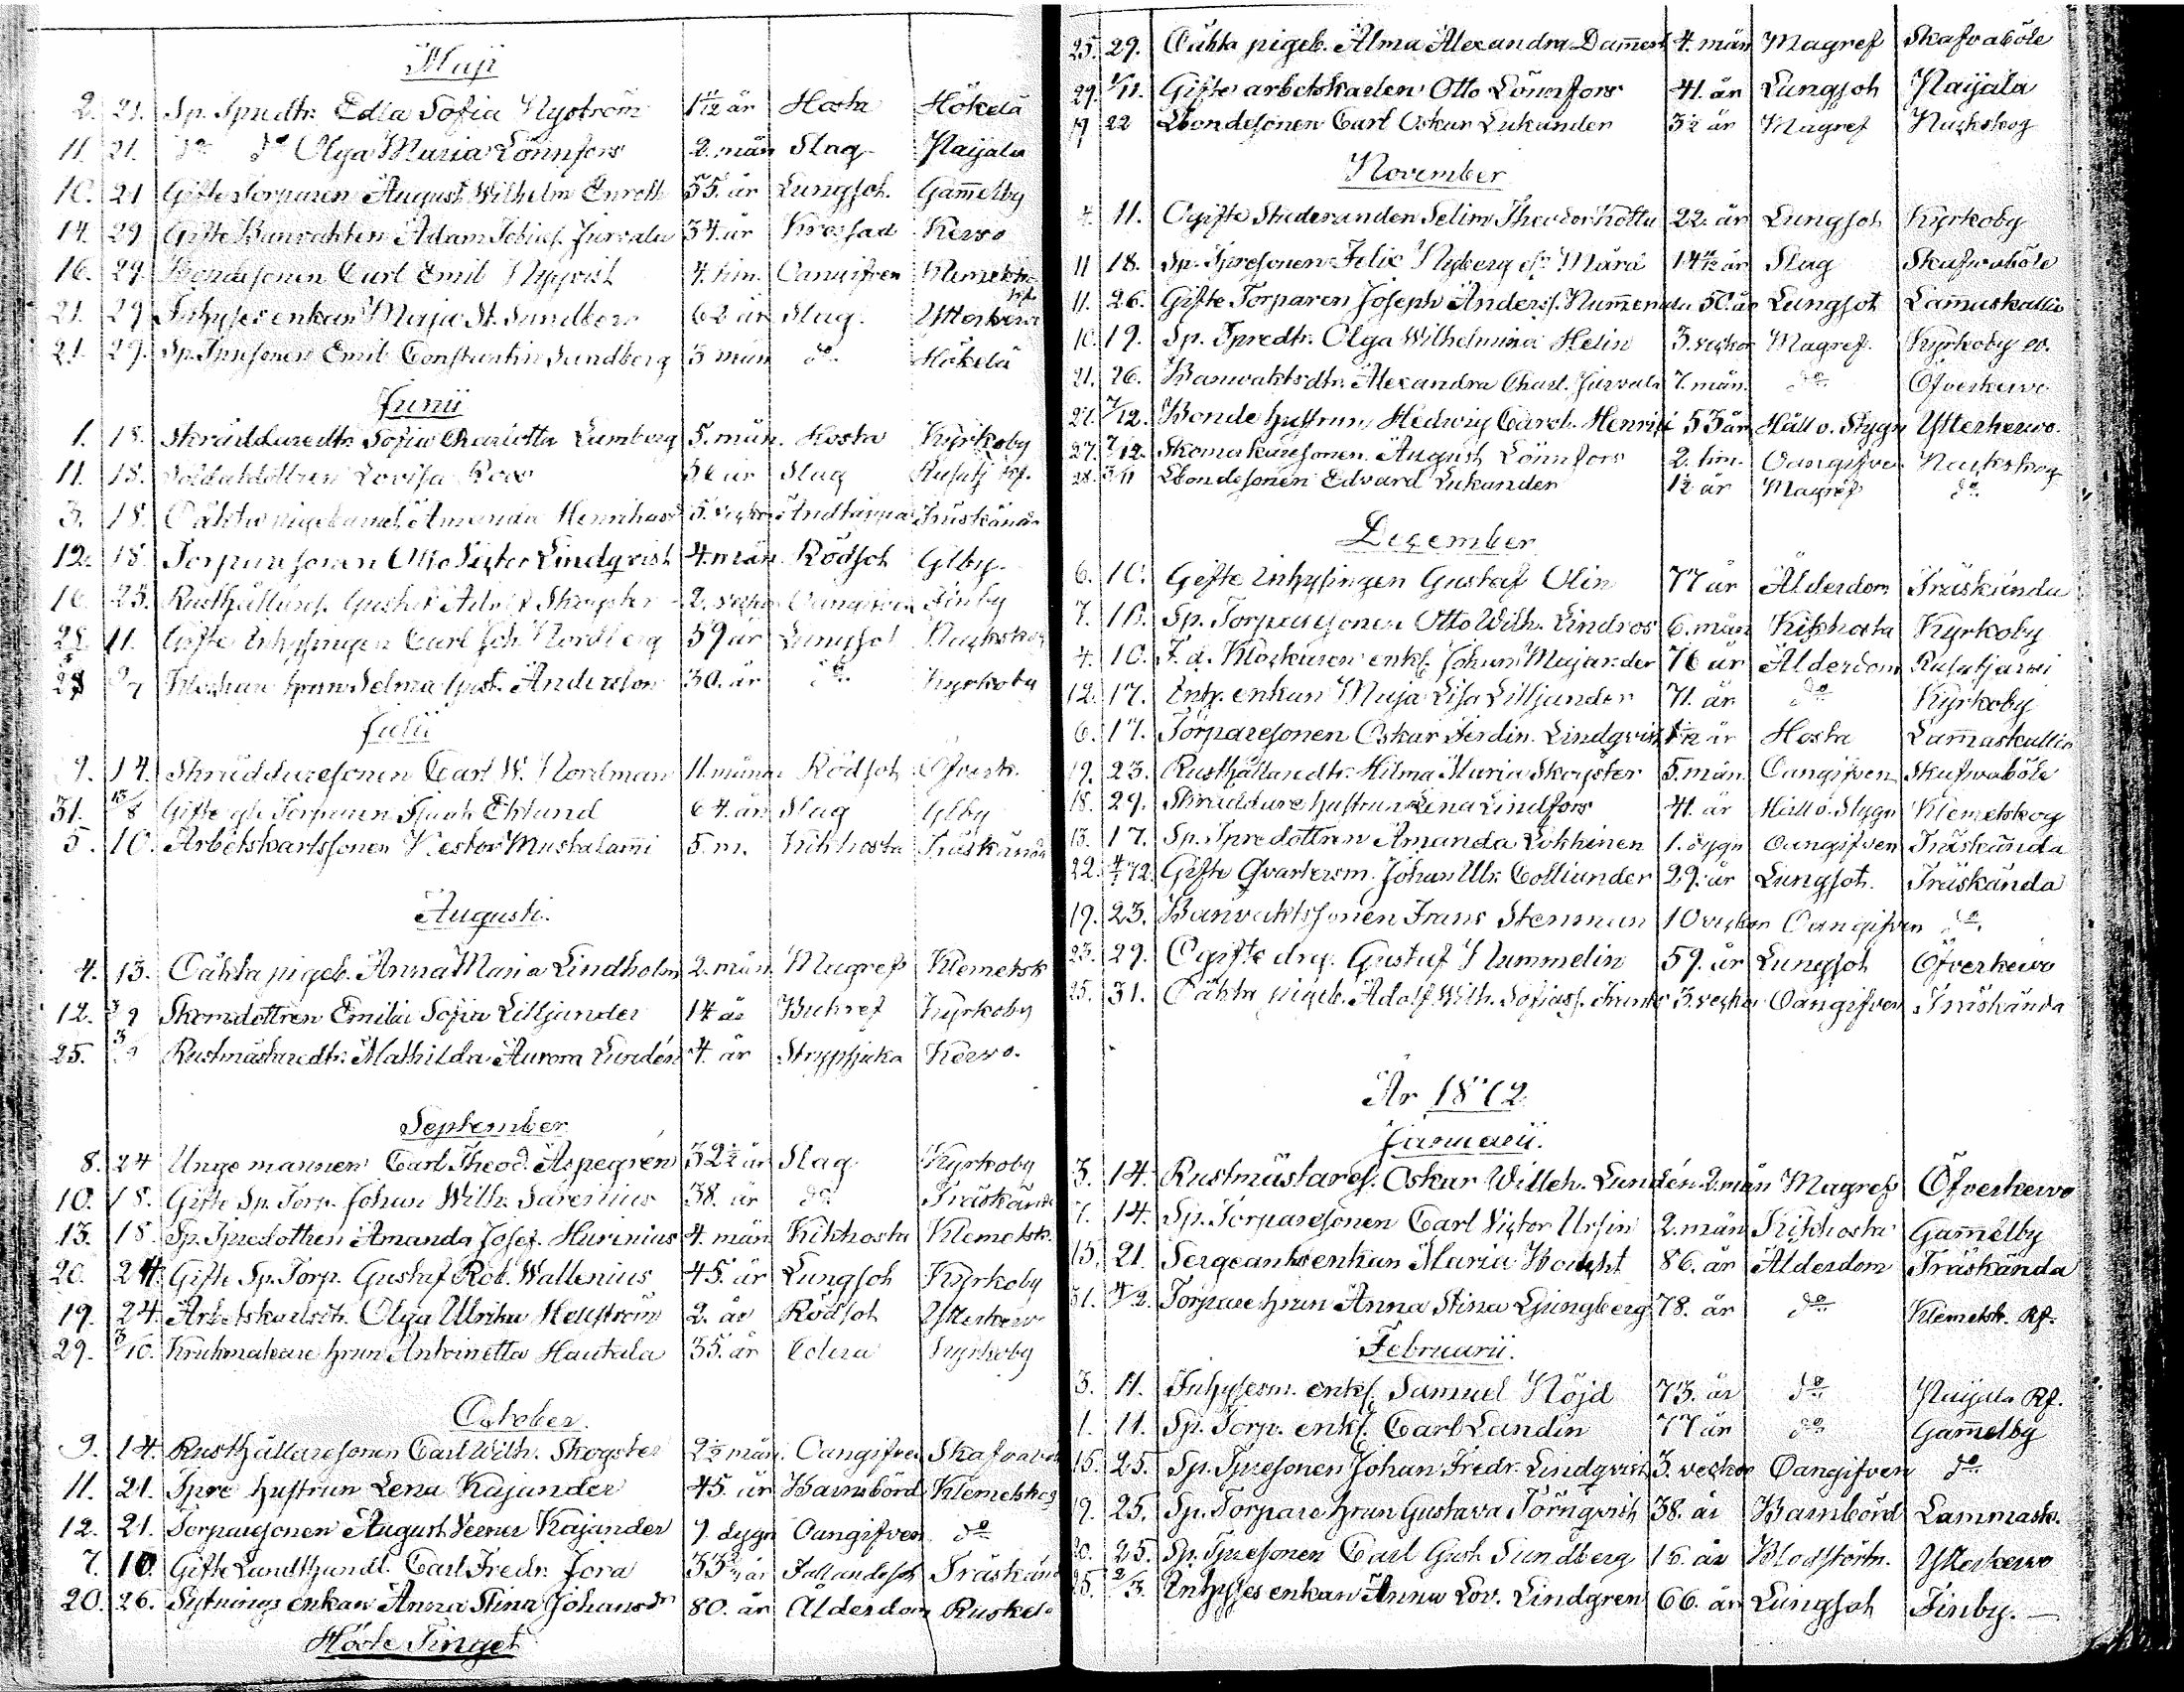 Maji
2. 21. Sp. Spredtr. Edla Sofia Nyström 1 11/12 år Hosta Hökelä
11. 21. do do Olga Maria Lönnfors 2. mån Slag Nayala
10. 21 Gifte torparen August Wilhelm Enroth 55. år Lungsot. Gam̄elby
14. 29 Gifte Banvakten Adam Jurvala 34. år Krossad Kerwo
16. 29. Bondesonen Carl Emil Nyqvist 4. tim. Oangifven Klemetsk.
21. 29 Inhyses enkan Maja St. Sundberg 62 år Slag. Ytterkervo
21. 29. Sp. Spresonen Emil Constantin Sundberg 3 mån do Hökelä
Junii
1. 18. Skräddaredtr. Sofia Charlotta Lumberg 5. mån. Hosta Kyrkoby
11. 18. Soldatdottren Lovisa Roos 56 år Slag Rusutj. Rf.
3. 18. Oäkta Amanda 5. veckor Andtäppa Träskända
12. 18 Torparesonen Otto Victor Lindqvist 4. mån Rödsot Glby.
16. 23. Rusthållares. Gustaf Adolf Skogster 2. veckor Oangifven Finby
28. 11. Gifte Inhysingen Carl Joh. Nordberg 59 år Lungsot Nackskog
28 9/7 Klockare hrun Selma Gust. Andersson 30. år do Kyrkoby
Julii
9. 14. Skräddaresonen Carl W. Nordman 11. månr Rödsot Öfverk.
31. 13/8 Gifte gl. Torparen Isaak Eklund 64. år Slag Glby
5. 10. Arbetskarlssonen Nestor Mustalam̄i 5. m. Kikhosta Träskända
Augusti.
4. 13. Oäkta pigeb. Anna Maria Lindholm 2. mån. Magref Klemetsk
12. 3/9 Skomdottren Emilia Sofia Lilljander 14 år Bukref Kyrkoby
25. 3/9 Rustmästaredtr. Mathilda Aurora Lundén 4. år Strypsjuka Kerwo.
September
8. 24 Unge mannen Carl Theod. Aspegrén 32 1/2 år Slag Kyrkoby
10. 18. Gifte Sp. Torp. Johan Wilh. Sarenius 38. år do Träskända
13. 18. Sp. Spredottren Amanda Josef. Hurinius 4. mån Kikhosta Klemetsk.
20. 24. Gifte Sp. Torp. Gustaf Rob. Wallenius 45. år Lungsot Kyrkoby
19. 24. Arbetskarlsdtr. Olga Ulrika Hellström 2. år Rödsot Ytterkerv
29. 3/10. Krukmakare hrun Antoinetta Hautala 35. år Colera Kyrkoby
October.
9. 14. Rusthållaresonen Carl Wilh. Skogster 2 1/2 mån. Oangifven Skafvab
11. 21. Spre hustrun Lena Kajander 45. år Barnsbörd Klemetskog
12. 21. Torparesonen August Verner Kajander 9. dygn Oangifven do
7. 10. Gifte Landthandl. Carl Fredr. Jora 33 3/4 år Fallandesot Träskänd
20. 26. Sytnings enkan Anna Stina Johansdr 80. år Ålderdom Ruskela
Höste Tinget
25. 29. Oäkta pigeb. Alma Alexandra Dam̄ert 4. mån Magref Skafvaböle
29. 1/11. Gifte arbetskarlen Otto Lönnfors 41. år Lungsot Nayala
19 22 Bondesonen Carl Oskar Lukander 3 1/2 år Magref Nackskog
November
4. 11. Ogifte Studeranden Selim Theodor Kottu 22. år Lungsot Kyrkoby
11 18. Sp. Spresonen Felix Nyberg 14 år Slag Skafvaböle
11. 26. Gifte Torparen Joseph Anders. Num̄enala 50. år Lungsot Lam̄askallio
10. 19. Sp. Spredtr. Olga Wilhelmina Helin 3. veckor Magref. Kyrkoby
21. 26. Banvaktsdtr. Alexandra Charl. Jurvala 7. mån. do Öfverkervo
27. 7/12. Bonde hustrun Hedwig Carol. Henriks 53 år Håll o. Stygn Ytterkerwo.
27. 7/12. Skomakaresonen August Lönnfors 2. tim. Oangifven Nackskog
28. 3/11 Bondesonen Edvard Lukander 1 1/2 år Magref do
December
6. 10. Gifte Inhysingen Gustaf Olin 77 år Ålderdom Träskända
7. 10. Sp. Torparesonen Otto Wilh. Lindros 6. mån Kikhosta Kyrkoby
4. 10. F. d. Klockaren enkl. Johan Majander 76 år Ålderdom Rusutjärvi
12. 17. Inhy. enkan Maja Lisa Lilljander 71. år do Kyrkoby
6. 17. Torparesonen Oskar Ferdin. Lindqvist år Hosta Lam̄askallio
19. 23. Rusthållaredtr. Hilma Maria Skogster 5. mån. Oangifven Skafwaböle
18. 29. Skräddare hustrun Lena Lindfors 41. år Håll o. Stygn Klemetskog
13. 17. Sp. Spredottren Amanda Lokkinen 1. dygn Oangifven Träskända
22. 4/1 72. Gifte Qvarterm. Johan Ulr. Colliander 29. år Lungsot. Träskända
19. 23. Banvaktssonen Frans Stenman 10 veckor Oangifven do
23. 29. Ogifte drg. Gustaf Nummelin 59. år Lungsot Öfverkervo
25. 31. Oäkta pigeb. Adolf Wilh. Sofias. 3. veckor Oangifven Träskända
År 1872
Januarii.
3. 14. Rustmästares. Oskar Willeh. Lundén 2. mån Magref Öfverkervo
7. 14. Sp. Torparesonen Carl Victor Ursin 2. mån Kikhosta Gam̄elby
15. 21. Sergeantsenkan Maria 86. år Ålderdom Träskända
31. 4/2. Torpare hrun Anna Stina Ljungberg 78. år do Klemetsk. Rf.
Februarii.
3. 11. Inhysesm. enkl. Samuel Nöjd 73. år do Nayala Rf.
1. 11. Sp. Torp. enkl. Carl Lundin 77 år do Gam̄elby
15. 25. Sp. Spresonen Johan Fredr. Lindqvist 3. veckor Oangifven do
19. 25. Sp. Torpare hrun Gustava Törnqvist 38. år Barnbörd Lammask.
20. 25. Sp. Spresonen Carl Gust. Sundberg 16. år Blodförtn. Ytterkervo
25. 2/3. Inhyses enkan Anna Lov. Lindgren 66. år Lungsot Finby.